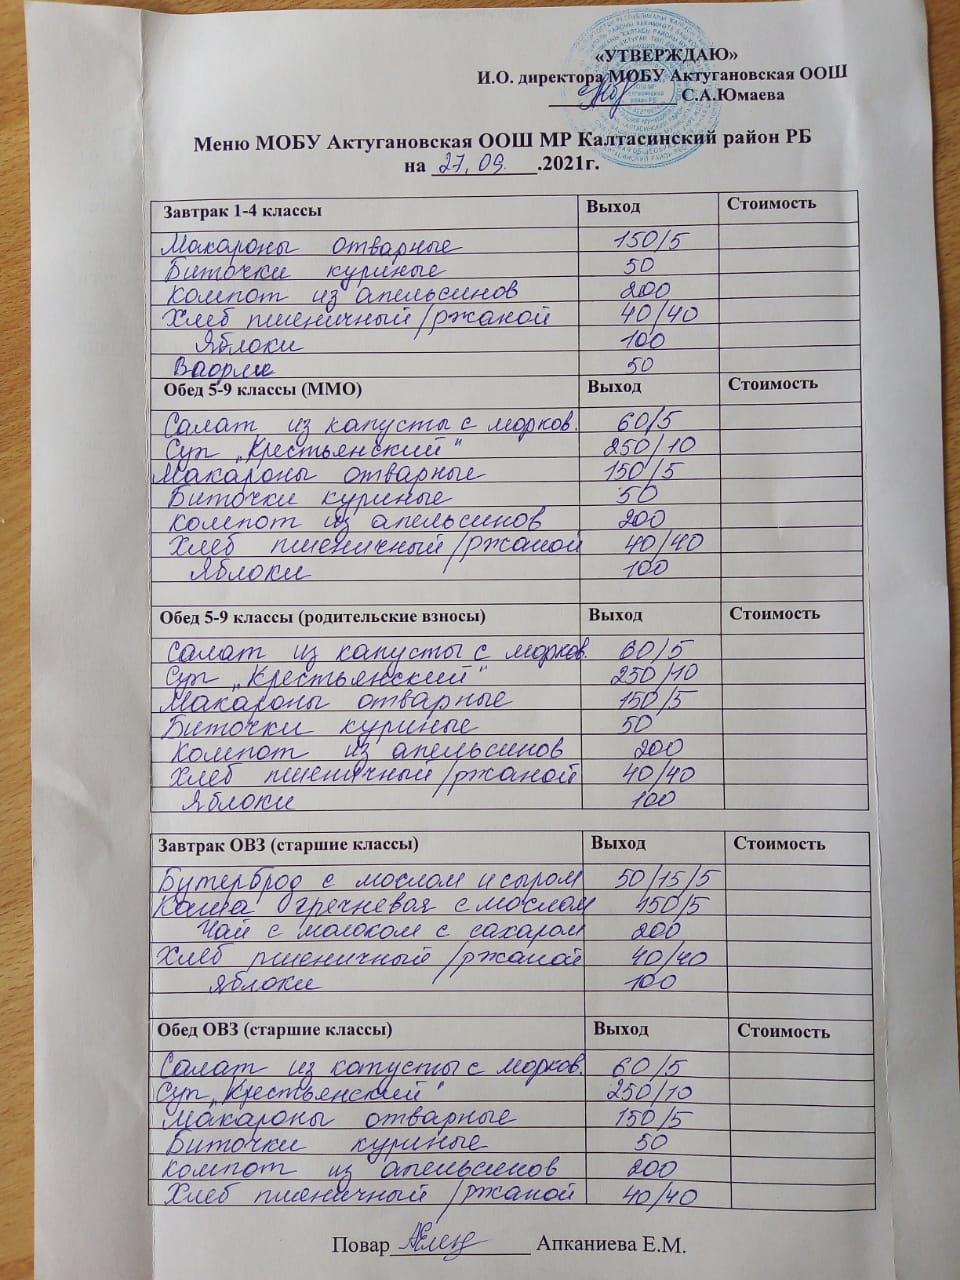 «УТВЕРЖДАЮ»
И.О. директора МОБУ Актугановская ООШ
С.А.Юмаева
Меню МОБУ Актугановская ООШ МР Калтасинский район РБ
на 27.09.2021г.
Завтрак 1-4 классы Выход Стоимость
Макароны отварные 150/5
Биточки куриные 50
Компот из апельсинов 200
Хлеб пшеничный/ржаной 40/40
Яблоки 100
50
Обед 5-9 классы (ММО) Выход Стоимость
Салат из капусты с морков. 60/5
Суп „Крестьянский" 250/10
Макароны отварные 150/5
Биточки куриные 50
Компот из апельсинов 200
Хлеб пшеничный/ржаной 40/40
Яблоки 100
Обед 5-9 классы (родительские взносы) Выход Стоимость
Салат из капусты с морков. 60/5
Суп „Крестьянский" 250/10
Макароны отварные 150/5
Биточки куриные 50
Компот из апельсинов 200
Хлеб пшеничный/ржаной 40/40
Яблоки 100
Завтрак ОВЗ (старшие классы) Выход Стоимость
Бутерброд с маслом и сыром 50/15/5
Каша гречневая с маслом 150/5
Чай с молоком с сахаром 200
Хлеб пшеничный/ржаной 40/40
Яблоки 100
Обед ОВЗ (старшие классы) Выход Стоимость
Салат из капусты с морков. 60/5
Суп „Крестьянский" 250/10
Макароны отварные 150/5
Биточки куриные 50
Компот из апельсинов 200
Хлеб пшеничный/ржаной 40/40
Повар Апканиева Е.М.